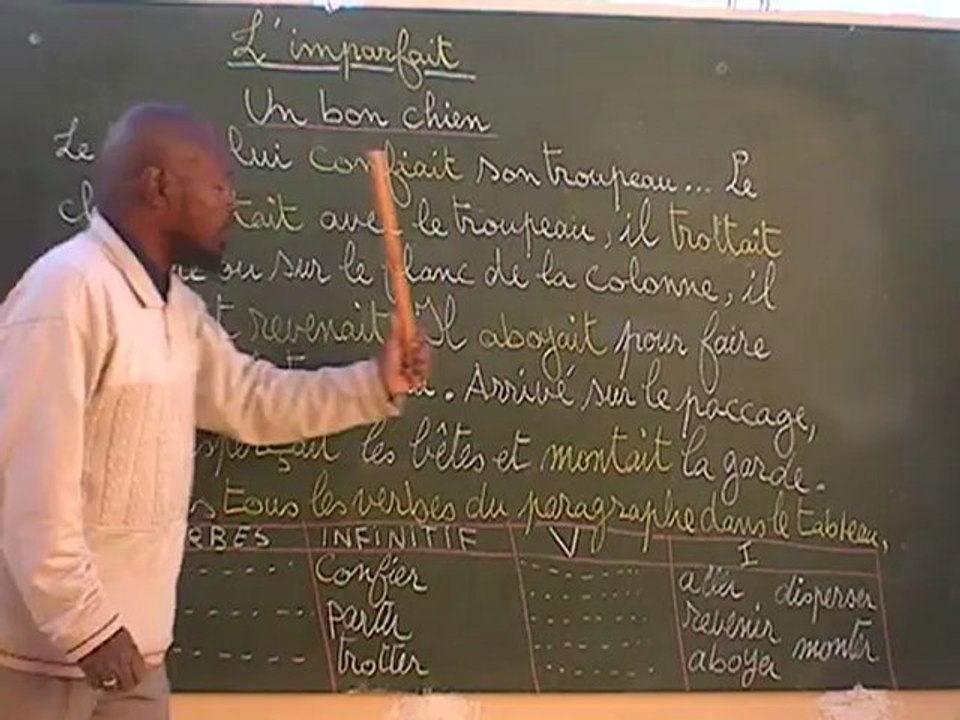 L'imparfait
Un bon chien
Le lui confiait son troupeau... Le
avec le troupeau, il trottait
ou sur le flanc de la colonne, il
revenait. Il aboyait pour faire
. Arrivé sur le paccage,
les bêtes et montait la garde.
tous les verbes du paragraphe dans le tableau,
INFINITIF V I
confier aller disperser
partir revenir monter
trotter aboyer